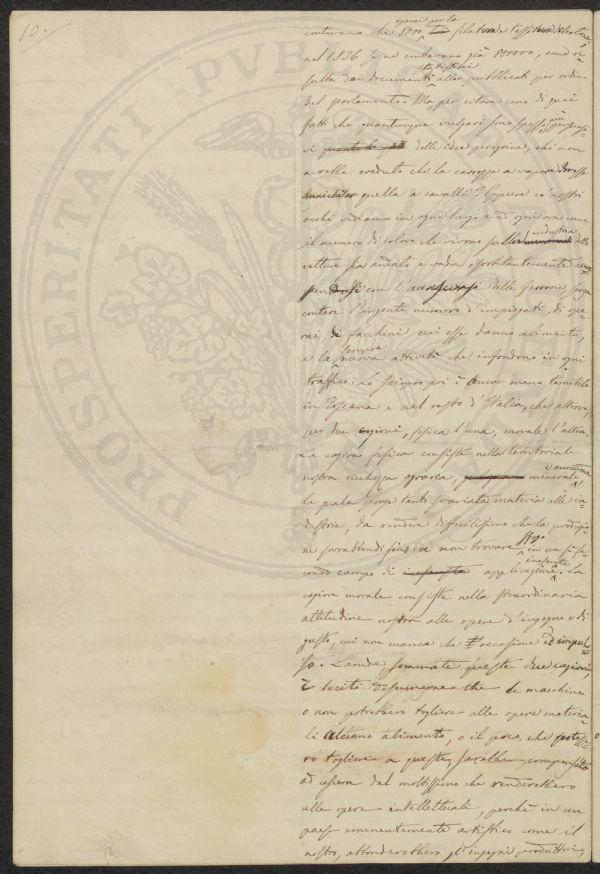 10.
operai per la
contavano che 800 filatura e tessitura del cotone,
nel 1836 se ne contavano già 80000, come ri=
statistici
sulta dai documenti allor pubblicati per ordine
del parlamento. Ma, per citare uno di quei
fatti che quantunque volgari sono spesso più persuasi=
vi delle idee peregrine, chi non
avrebbe creduto che la carrozza a vapore dovesse
annichilar quella a cavalli? Eppure co' nostri
occhi vediamo in ogni luogo e ad ogni ora come
industria
il numero di coloro che vivono sulla delle
vetture sia andato e vada esorbitantemente
con l'accrescersi delle ferrovie, senza
contare l'ingente numero d'impiegati, di ope=
rai, di facchini cui esse danno alimento,
sempre
e la nuova attività che infondono in ogni
traffico. Lo sciopero poi è ancor meno temibile
in Toscana e nel resto d'Italia, che altrove,
per due cagioni, fisica l'una, morale l'altra.
La cagione fisica consiste nella territoriale
e marittima
nostra ricchezza agraria, minerale
la quale porge tanto svariata materia alle in=
dustrie, da rendere difficilissimo che la produzio=
sfogo
ne sovrabbondi fino a non trovare in un sì fe=
condo campo di applicazione. La
cagione morale consiste nella straordinaria
attitudine nostra alle opere d'ingegno e di
gusto, cui non manca che occasione ed impul=
so. Laonde sommate queste due cagioni,
è lecito desumerne che le macchine
o non potrebbero togliere alle opere materia=
li alcuno alimento, o il poco che
togliere a queste, sarebbe compensato
ad usura dal moltissimo che renderebbero
alle opere intellettuali, perchè in un
paese eminentemente artistico come il
nostro, abbonderebbero gl'ingegni produttori,
PROSPERITATI PUB